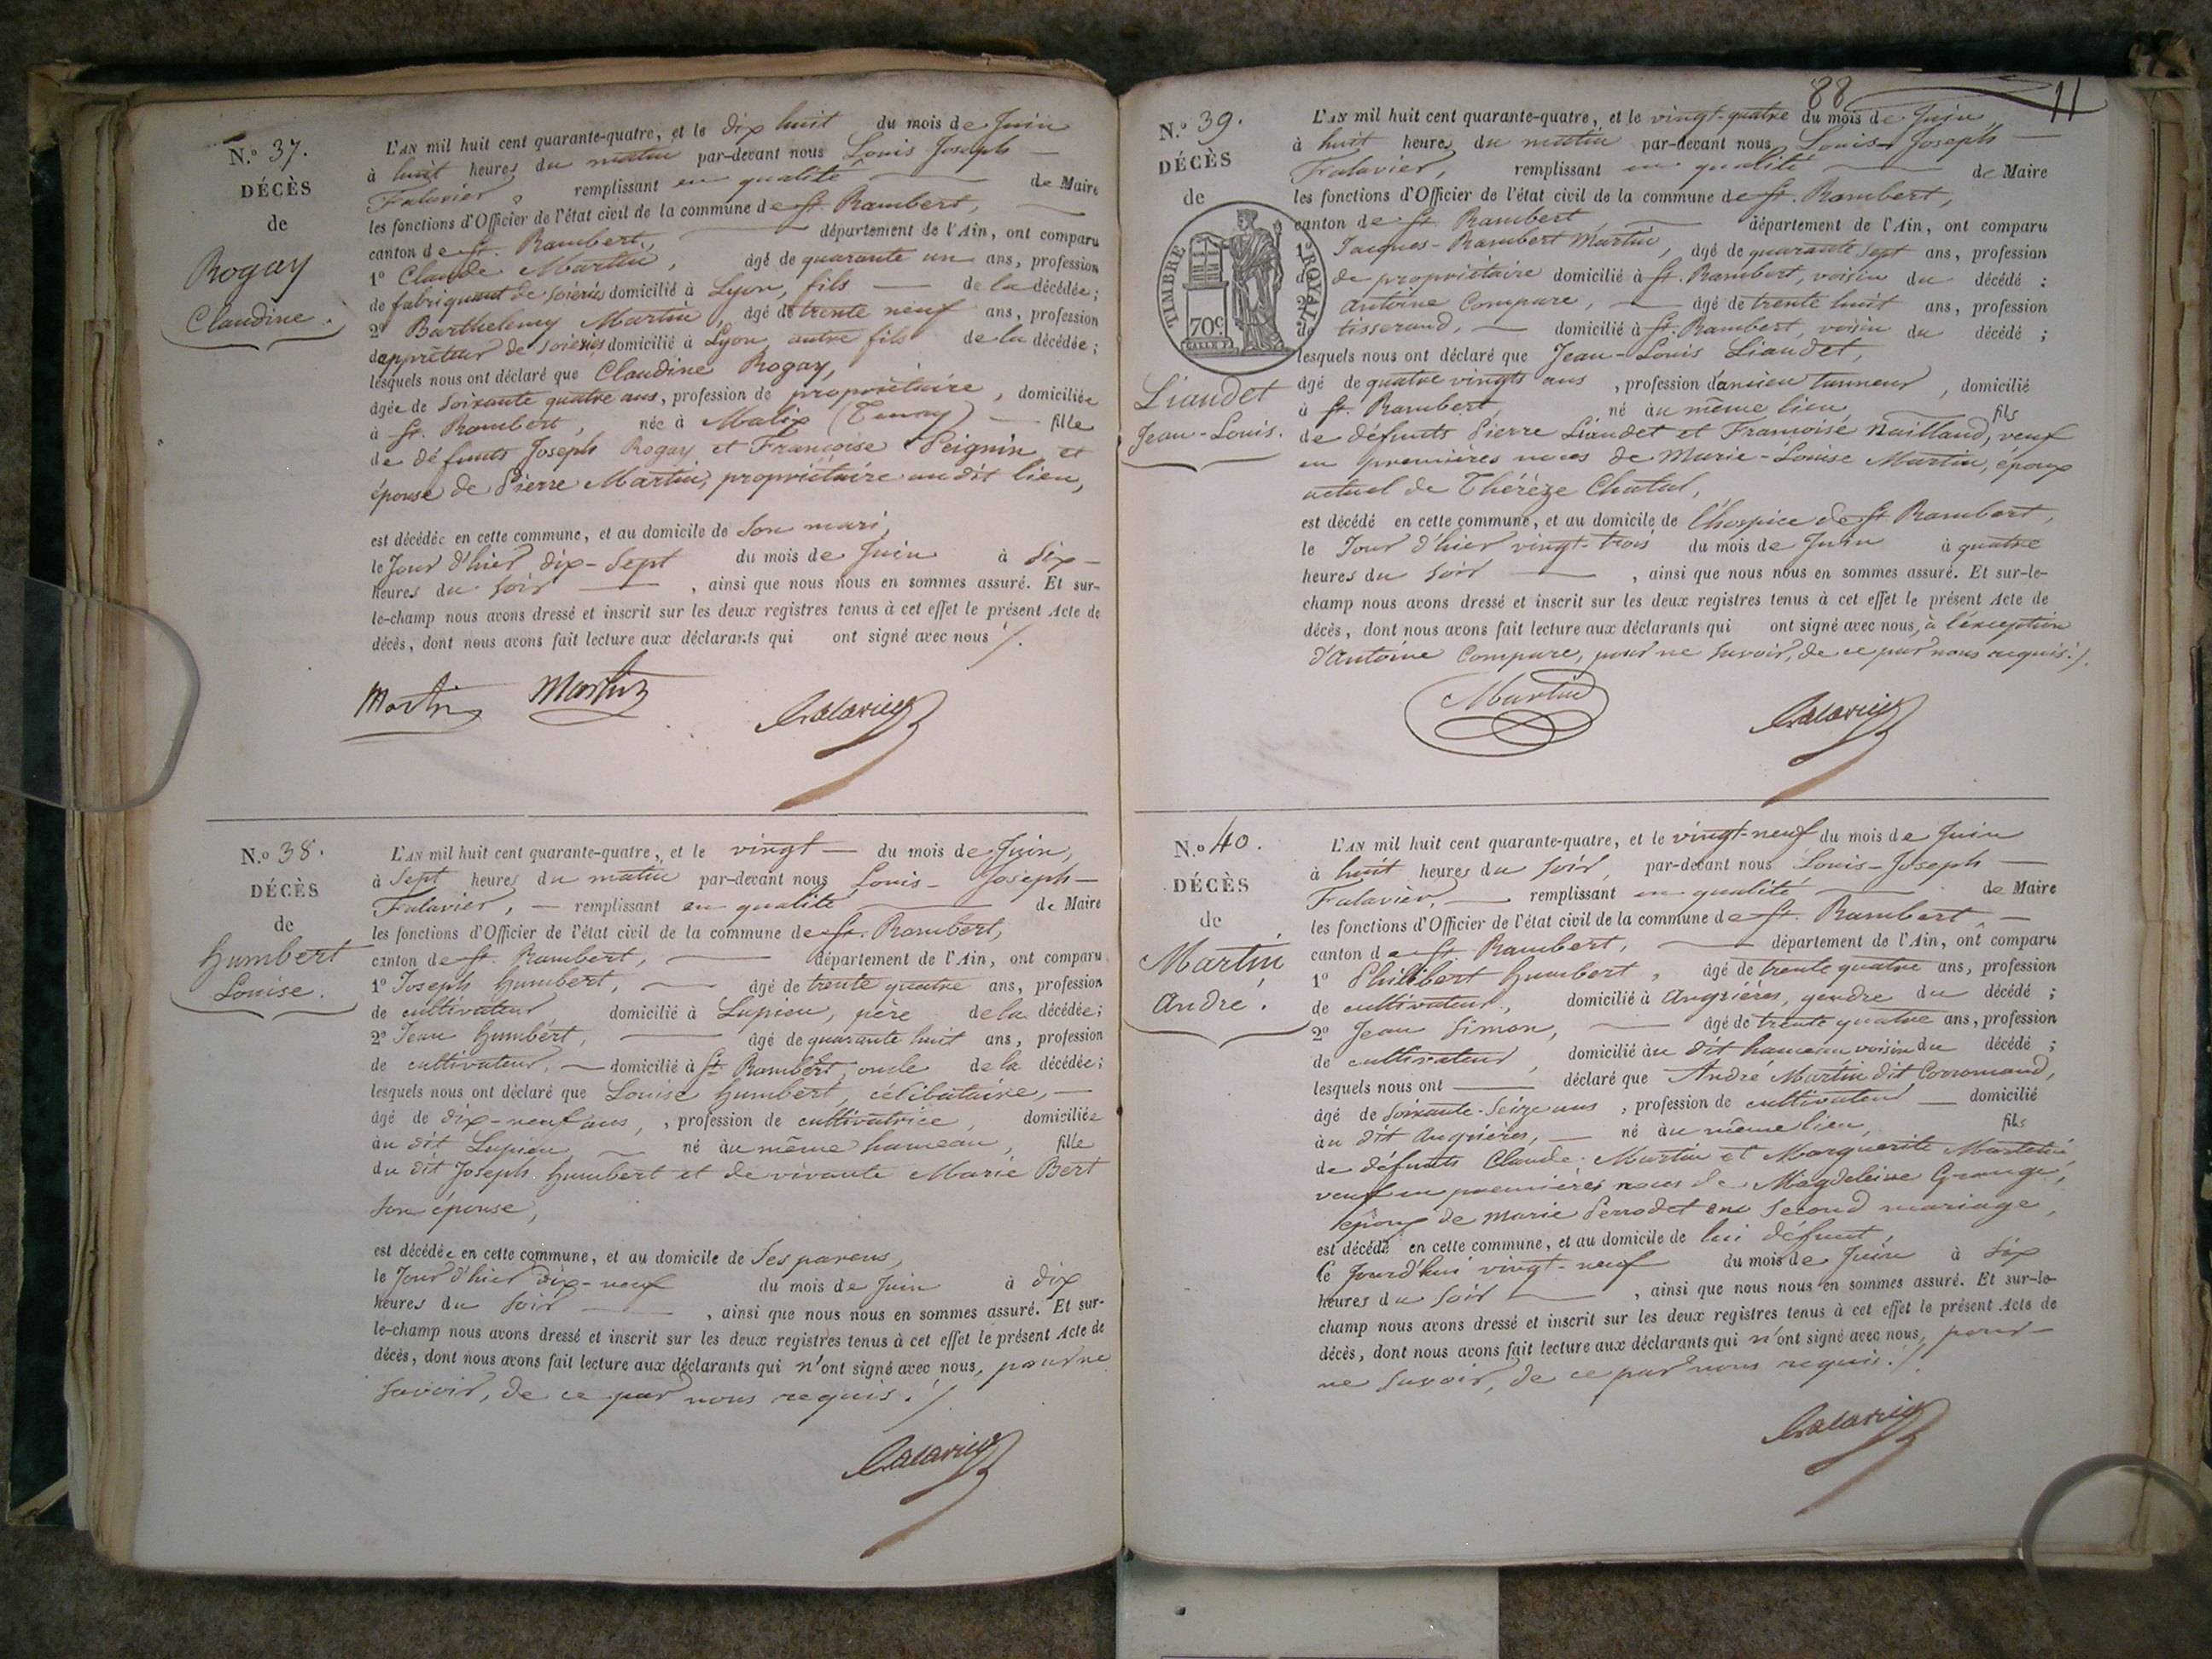 N.º 37.
DÉCÈS
de
Rogay
Claudine.
L'AN mil huit cent quarante-quatre, et le dix huit du mois de Juin
à huit heures du matin par-devant nous Louis Joseph
Falavier, remplissant en qualité de Maire
les fonctions d'Officier de l'état civil de la commune de St. Rambert,
canton de St. Rambert, département de l'Ain, ont comparu
1º Claude Martin, âgé de quarante un ans, profession
de fabriquant de soieries domicilié à Lyon, fils de la décédée;
2º Barthelemy Martin, âgé de trente neuf ans, profession
d'apprêteur de soieries domicilié à Lyon, autre fils de la décédée;
lesquels nous ont déclaré que Claudine Rogay,
âgée de soixante quatre ans, profession de propriétaire, domiciliée
à St. Rambert, née à Malix (Tenay) fille
de défunts Joseph Rogay et Francoise Peignin et
épouse de Pierre Martin, propriétaire au dit lieu,
est décédée en cette commune, et au domicile de son mari,
le Jour d'hier dix-sept du mois de Juin à six
heures du soir, ainsi que nous nous en sommes assuré. Et sur-
le-champ nous avons dressé et inscrit sur les deux registres tenus à cet effet le présent Acte de
décès, dont nous avons fait lecture aux déclarants qui ont signé avec nous ./.
Martin Martin Falavier
N.º 38.
DÉCÈS
de
Humbert
Louise.
L'AN mil huit cent quarante-quatre, et le vingt du mois de Juin,
à sept heures du matin par-devant nous Louis-Joseph
Falavier, remplissant en qualité de Maire
les fonctions d'Officier de l'état civil de la commune de St. Rambert,
canton de St. Rambert, département de l'Ain, ont comparu
1º Joseph Humbert, âgé de trente quatre ans, profession
de cultivateur domicilié à Lupieu, père de la décédée;
2º Jean Humbert, âgé de quarante huit ans, profession
de cultivateur, domicilié à St. Rambert, oncle de la décédée;
lesquels nous ont déclaré que Louise Humbert, célibataire,
âgé de dix-neuf ans, profession de cultivatrice, domiciliée
au dit Lupieu, né au même hameau, fille
du dit Joseph Humbert et de vivante Marie Bert
son épouse,
est décédée en cette commune, et au domicile de ses parens,
le Jour d'hier dix-neuf du mois de Juin à dix
heures du soir, ainsi que nous nous en sommes assuré. Et sur-
le-champ nous avons dressé et inscrit sur les deux registres tenus à cet effet le présent Acte de
décès, dont nous avons fait lecture aux déclarants qui n'ont signé avec nous, pour ne
savoir, de ce par nous requis ./.
Falavier
88 11
N.º 39.
DÉCÈS
de
TIMBRE ROYAL
70 c
Liaudet
Jean-Louis.
L'AN mil huit cent quarante-quatre, et le vingt-quatre du mois de Juin,
à huit heures du matin par-devant nous Louis-Joseph
Falavier, remplissant en qualité de Maire
les fonctions d'Officier de l'état civil de la commune de St. Rambert,
canton de St. Rambert, département de l'Ain, ont comparu
1º Jacques-Rambert Martin, âgé de quarante sept ans, profession
de propriétaire domicilié à St. Rambert, voisin du décédé :
2º Antoine Compare, âgé de trente huit ans, profession
de tisserand, domicilié à St. Rambert, voisin du décédé ;
lesquels nous ont déclaré que Jean-Louis Liaudet,
âgé de quatre vingts ans, profession d'ancien tanneur, domicilié
à St. Rambert, né au même lieu, fils
de défunts Pierre Liaudet et Francoise Nailland, veuf
en premières noces de Marie-Louise Martin, époux
actuel de Thérèze Chatal,
est décédé en cette commune, et au domicile de l'hospice de St. Rambert,
le Jour d'hier vingt-trois du mois de Juin à quatre
heures du soir, ainsi que nous nous en sommes assuré. Et sur-le-
champ nous avons dressé et inscrit sur les deux registres tenus à cet effet le présent Acte de
décès, dont nous avons fait lecture aux déclarants qui ont signé avec nous, à l'éxception
d'Antoine Compare, pour ne savoir, de ce par nous requis ./.
Martin Falavier
N.º 40.
DÉCÈS
de
Martin
André.
L'AN mil huit cent quarante-quatre, et le vingt-neuf du mois de Juin
à huit heures du soir, par-devant nous Louis-Joseph
Falavier, remplissant en qualité de Maire
les fonctions d'Officier de l'état civil de la commune de St. Rambert
canton de St. Rambert, département de l'Ain, ont comparu
1º Philibert Humbert, âgé de trente quatre ans, profession
de cultivateur, domicilié à Angrières, gendre du décédé ;
2º Jean Simon, âgé de trente quatre ans, profession
de cultivateur, domicilié au dit hameau voisin du décédé ;
lesquels nous ont déclaré que André Martin dit Corromand,
âgé de soixante-seize ans, profession de cultivateur domicilié
au dit Angrières, né au même lieu, fils
de défunts Claude Martin et Marguerite
veuf en premières noces de Magdeleine Grange,
époux de Marie Perrodet en second mariage,
est décédé en cette commune, et au domicile de lui défunt,
le Jourd'hui vingt-neuf du mois de Juin à six
heures du soir, ainsi que nous nous en sommes assuré. Et sur-le-
champ nous avons dressé et inscrit sur les deux registres tenus à cet effet le présent Acte de
décès, dont nous avons fait lecture aux déclarants qui n'ont signé avec nous, pour
ne savoir, de ce par nous requis ./.
Falavier